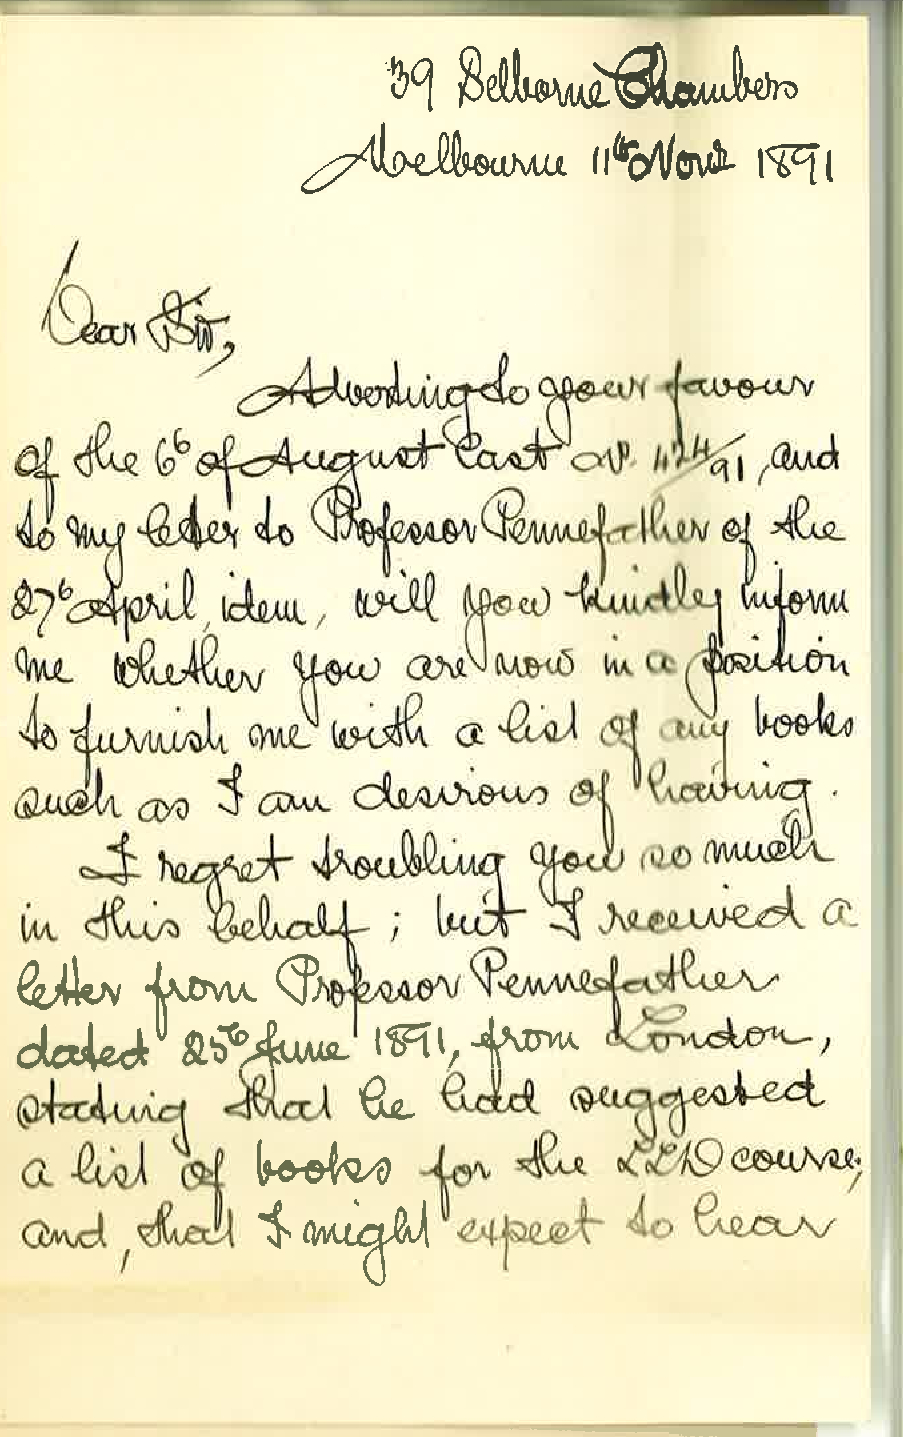 39 Selborne Chambers
Melbourne 11th Novr 1891
Dear Sir,
Adverting to your favour
of the 6th of August last 424/91, and
to my letter to Professor Pennefather of the
27th April, idem, will you kindly inform
me whether you are now in a position
to furnish me with a list of any books
such as I am desirous of having.
I regret troubling you so much
in this behalf; but I received a
letter from Professor Pennefather
dated 25th June 1891, from London,
stating that he had suggested
a list of books for the LLD course;
and, that I might expect to hear